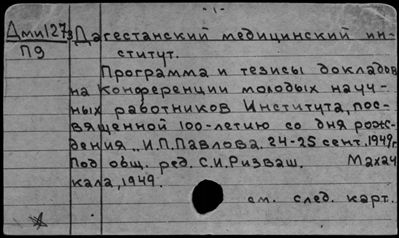 - 1 -
Дми127з Дагестанский медицинский ин-
П9 ститут.
Программа и тезисы докладов
на конференции молодых науч-
ных работников Института, пос-
вященной 100-летию со дня рож-
дения И.П.Павлова. 24-25 сент.1949г
Под общ. ред. С.И.Ризваш. Махач
кала, 1949.
см. след. карт.